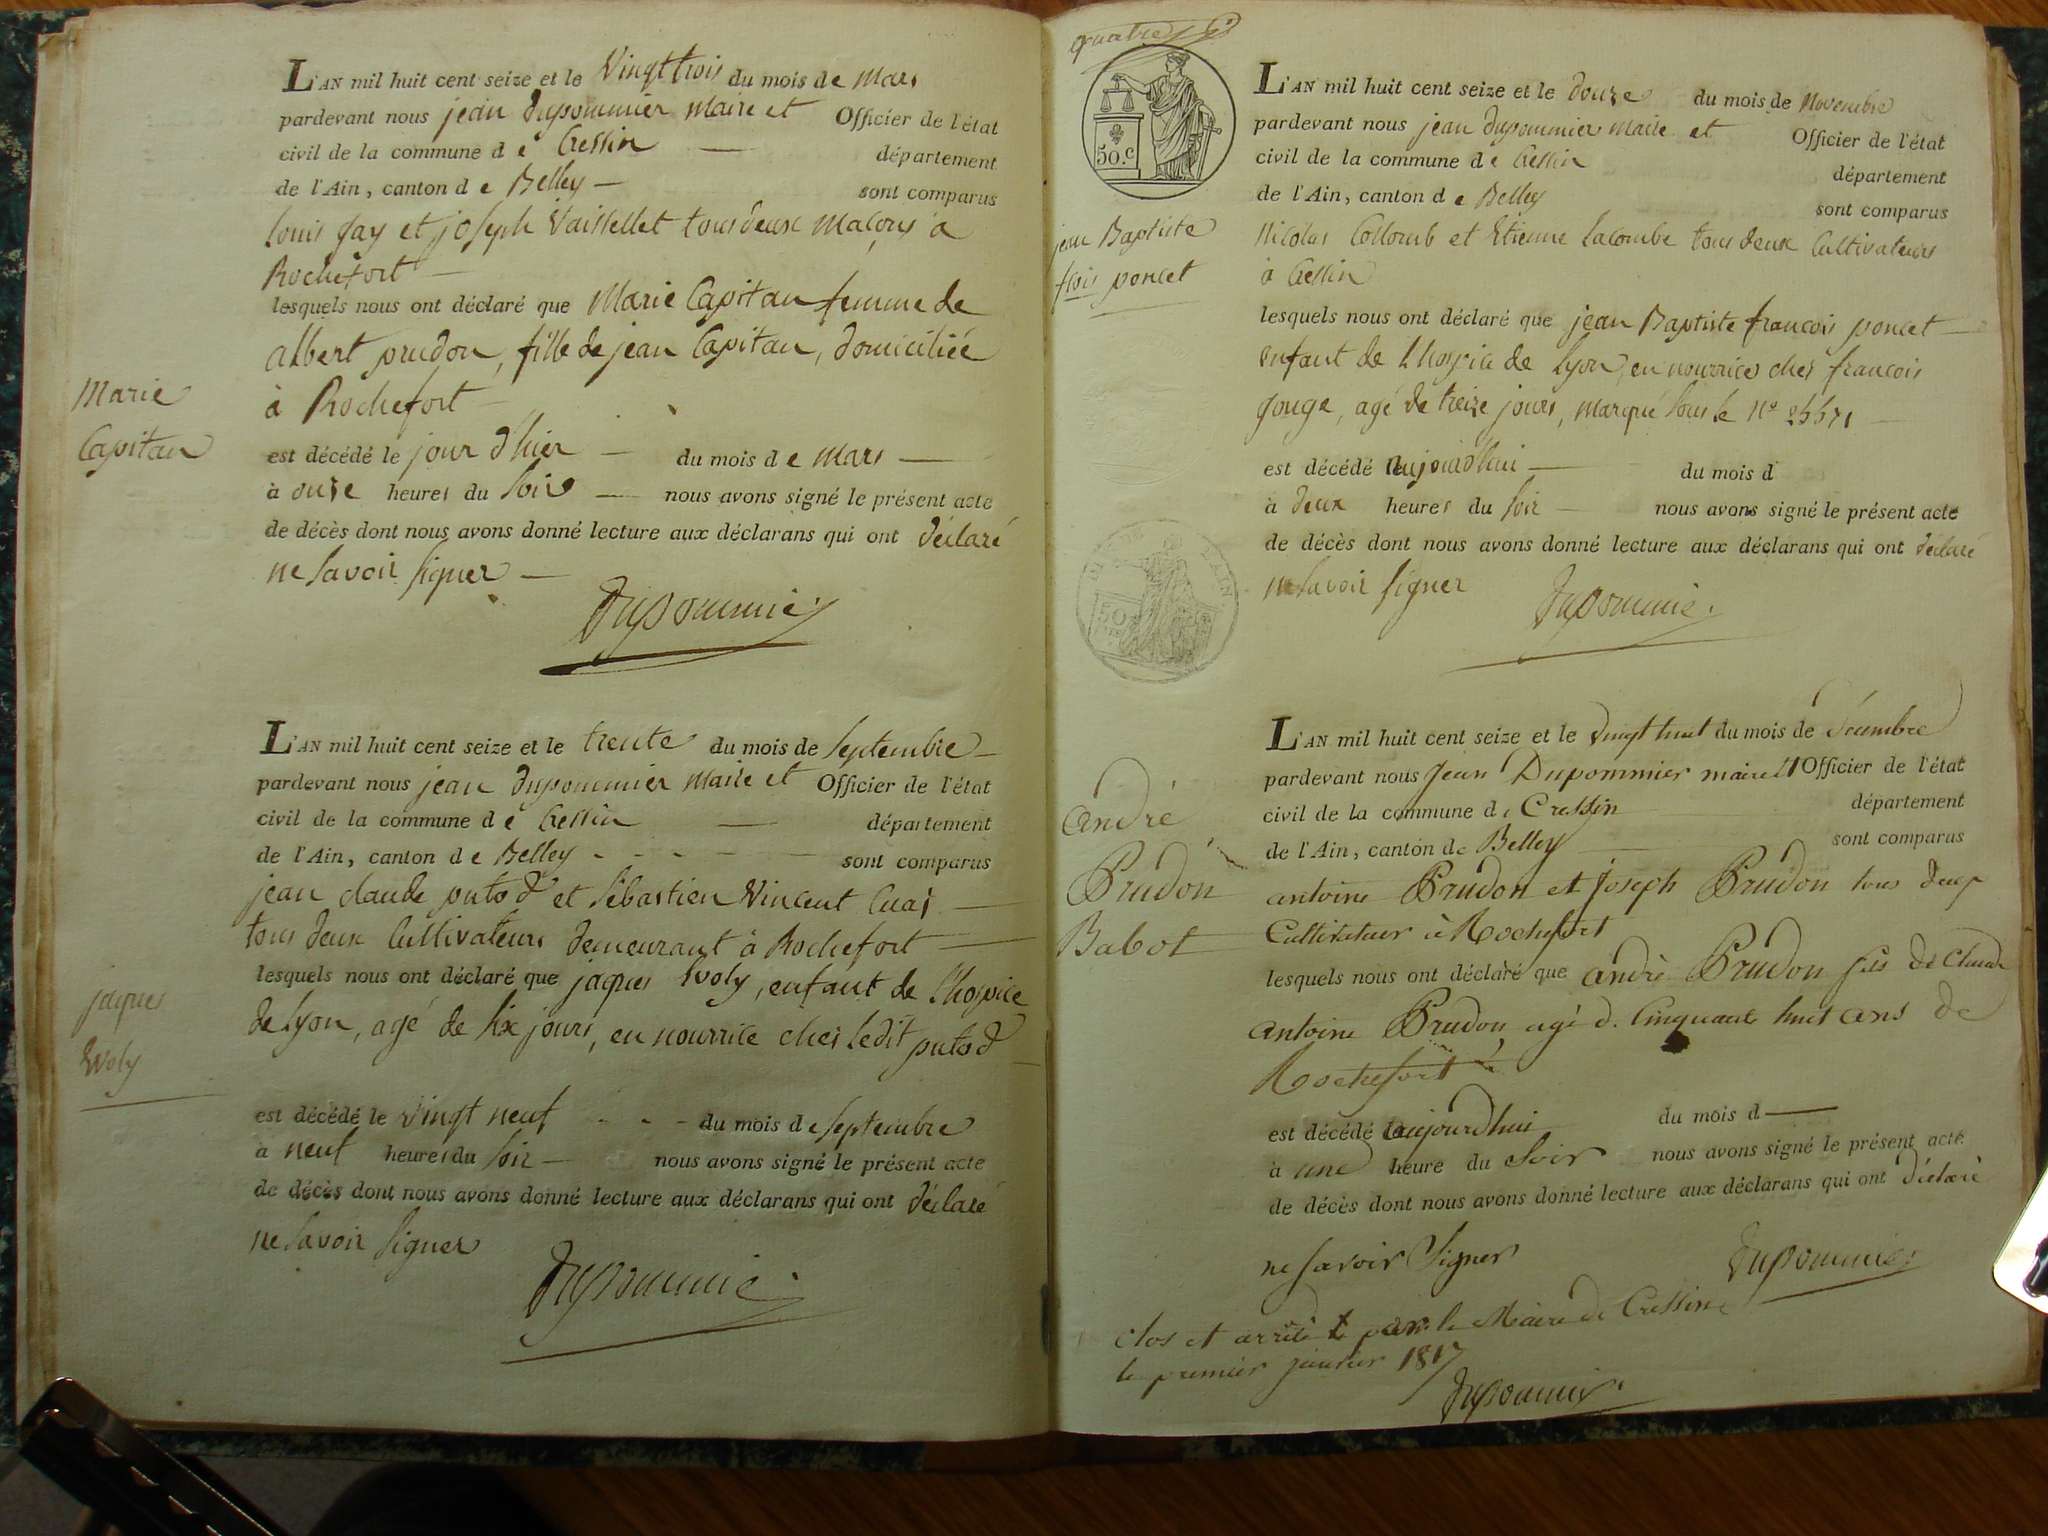 L'AN mil huit cent seize et le Vingt trois du mois de Mars
pardevant nous jean Dupommier Maire et Officier de l'état
civil de la commune d e Cressin — département
de l'Ain, canton d e Belley — sont comparus
louis Jay et joseph Vaissellet tous deux Maçons à
Rochefort —
lesquels nous ont déclaré que Marie Capitan femme de
albert prudon, fille de jean Capitan, domiciliée
à Rochefort —
Marie
Capitan
est décédé le jour d'hier — du mois d e Mars —
à onze heures du Soir — nous avons signé le présent acte
de décès dont nous avons donné lecture aux déclarans qui ont déclaré
ne savoir signer —
Dupommier
L'AN mil huit cent seize et le trente du mois de Septembre —
pardevant nous jean Dupommier Maire et Officier de l'état
civil de la commune d e Cressin — département
de l'Ain, canton d e Belley - - - — sont comparus
jean claude putod et sébastien Vincent Cuaz —
tous deux Cultivateurs demeurant à Rochefort —
lesquels nous ont déclaré que jaques Woly, enfant de l'hospice
de Lyon, agé de six jours, en nourrice chez ledit putod —
jaques
Woly
est décédé le Vingt neuf - - - du mois d e Septembre
à neuf heures du Soir — nous avons signé le présent acte
de décès dont nous avons donné lecture aux déclarans qui ont déclaré
ne savoir signer
Dupommier
quatre
50.c
L'AN mil huit cent seize et le douze du mois de Novembre
pardevant nous jean dupommier maire et Officier de l'état
civil de la commune d e Cressin département
de l'Ain, canton d e Belley sont comparus
jean Baptiste
fçois poncet
Nicolas Collomb et Etienne Lacombe tous deux Cultivateurs
à Cressin
lesquels nous ont déclaré que jean Baptiste francois poncet —
enfant de l'hospice de Lyon, en nourrice chez francois
gouge, agé de treize jours, marqué sous le N°
est décédé aujourd'hui — du mois d
à deux heures du Soir — nous avons signé le présent acte
de décès dont nous avons donné lecture aux déclarans qui ont déclaré
ne savoir signer
Dupommier
L'AN mil huit cent seize et le Vingt huit du mois de Décembre
pardevant nous Jean Dupommier maire et Officier de l'état
civil de la commune d e Cressin département
de l'Ain, canton de Belley — sont comparus
André
Prudon
Babot
antoine Prudon et Joseph Prudon tous deux
Cultivateur à Rochefort
lesquels nous ont déclaré que andré Prudon fils de Claude
antoine Prudon agé de Cinquante huit ans de
Rochefort
est décédé aujourd'hui du mois d —
à une heure du Soir nous avons signé le présent acte
de décès dont nous avons donné lecture aux déclarans qui ont déclaré
ne savoir Signer
Dupommier
Clos et arrêté par le Maire de Cressin
le premier janvier 1817
Dupommier